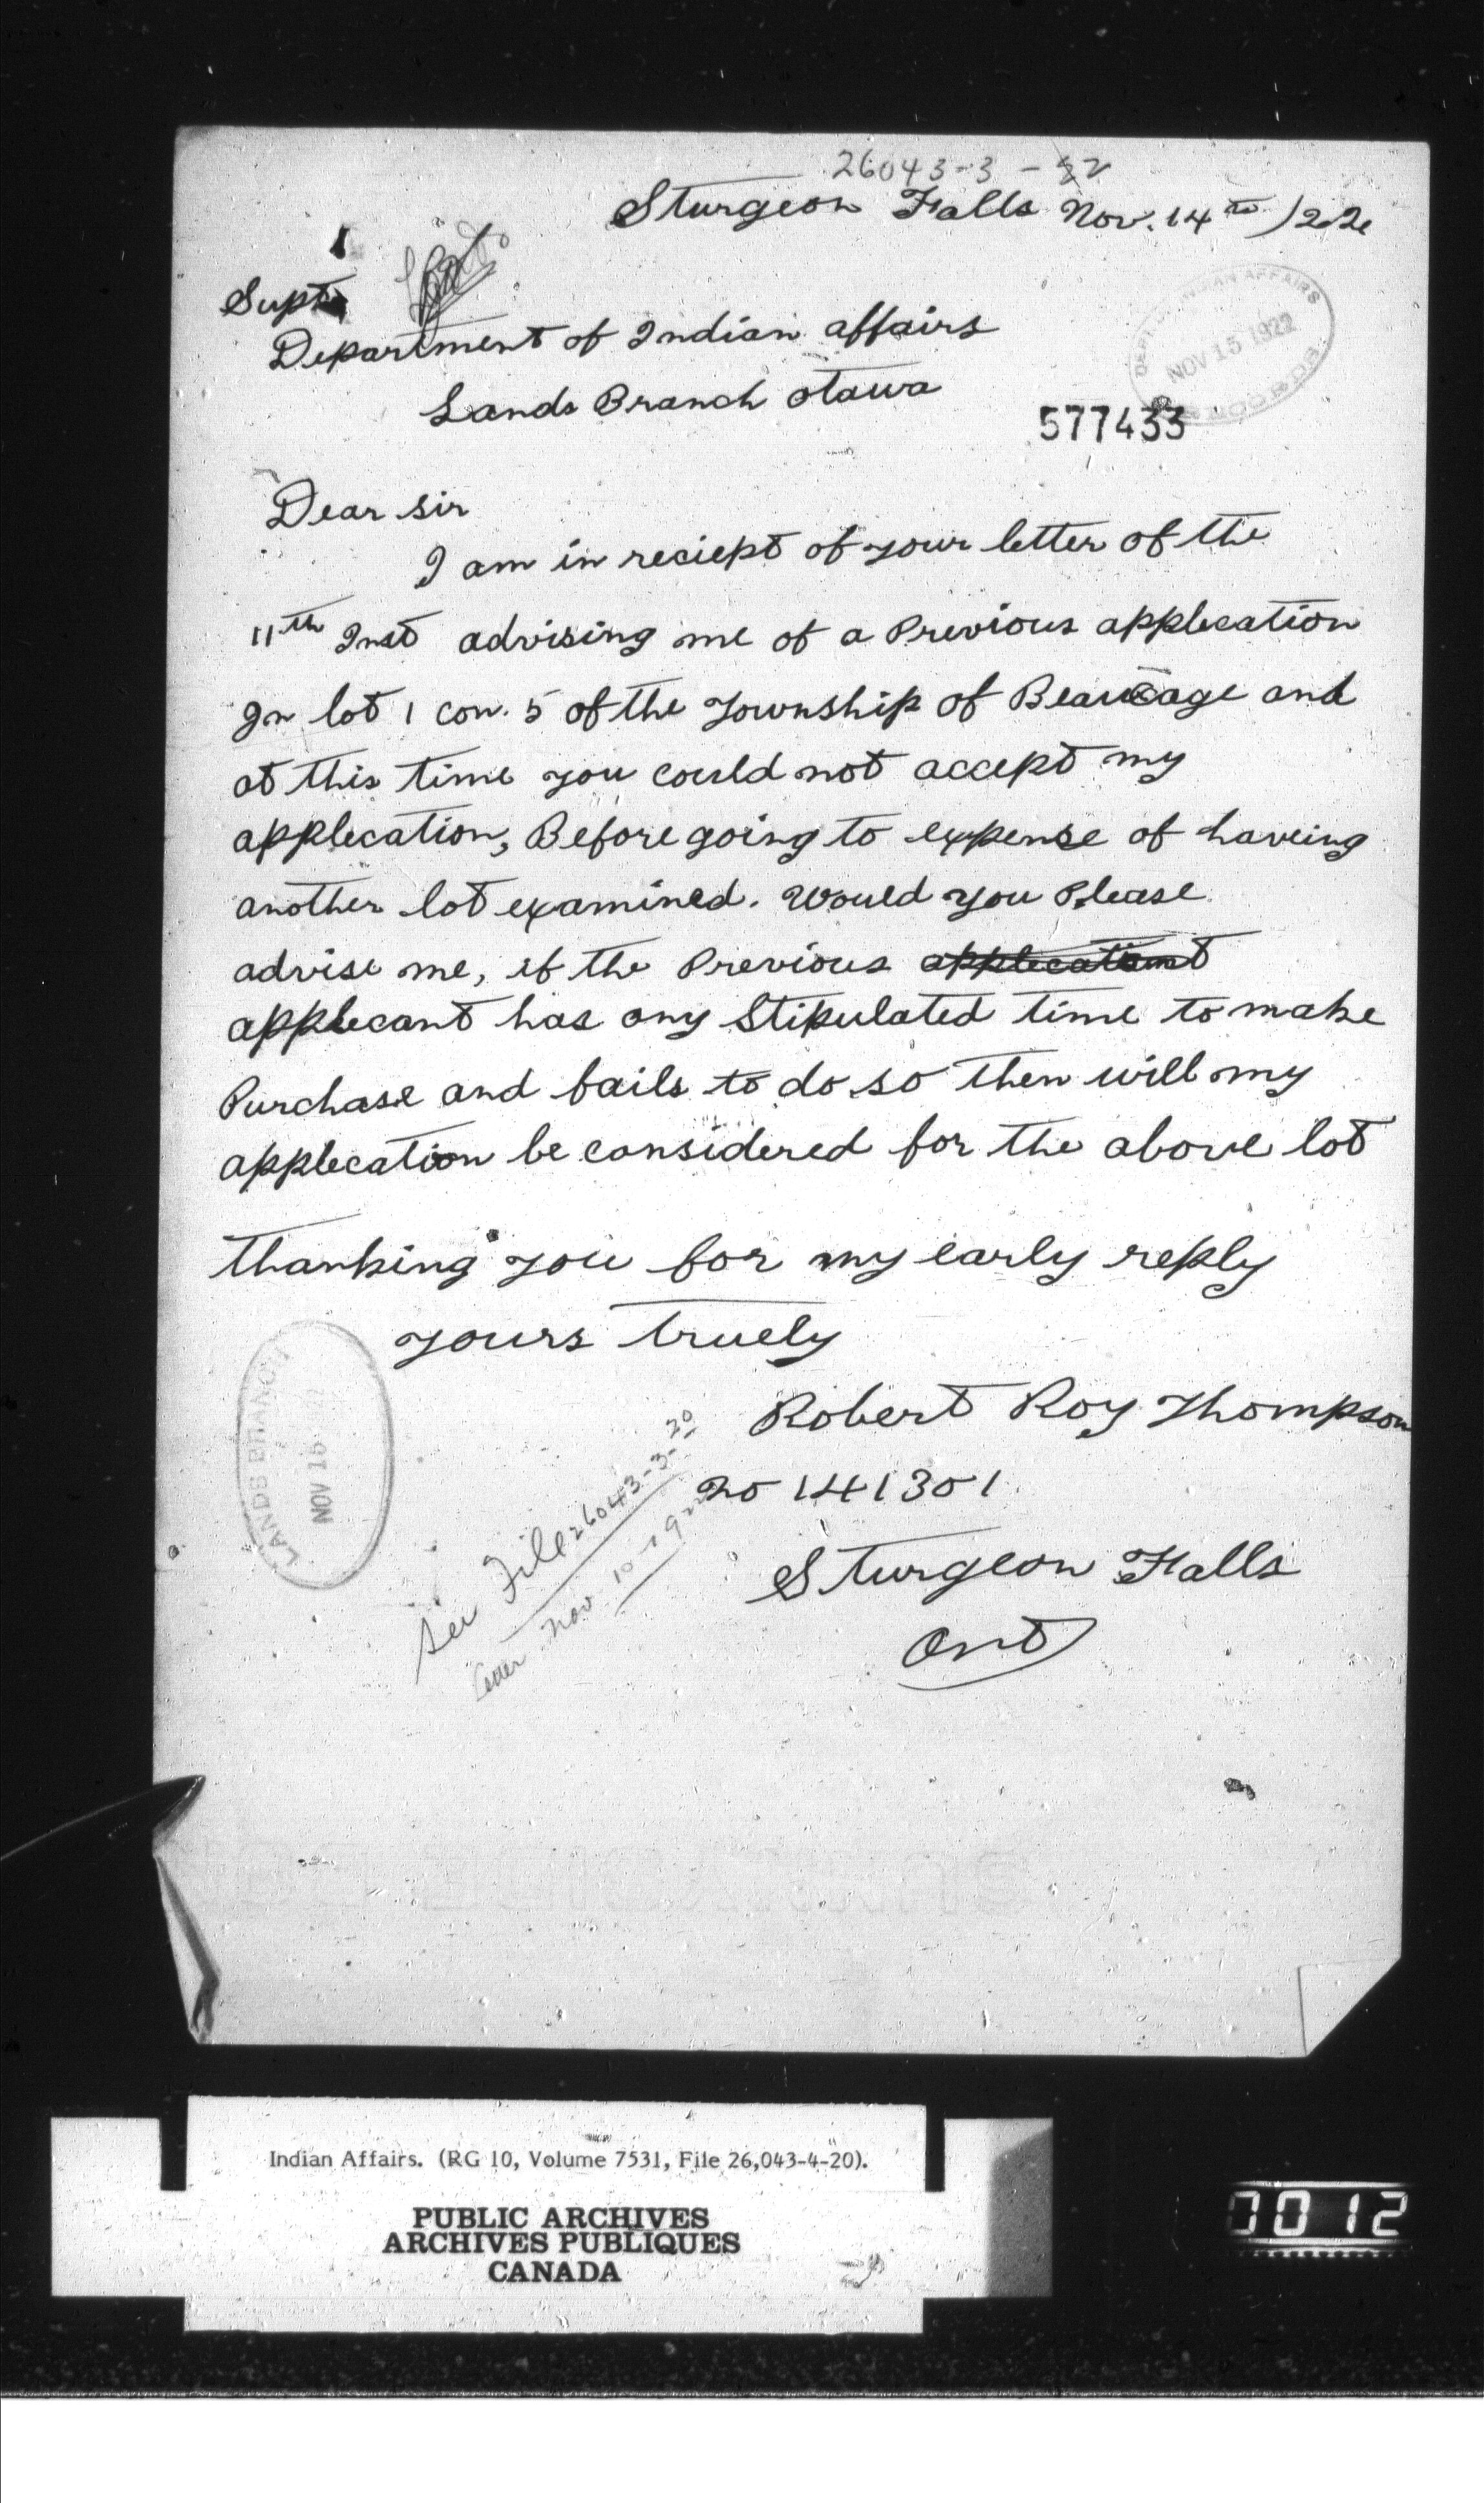 26043-3-32
Sturgeon Falls Nov. 14th /22
Supt
Department of Indian affairs
Lands Branch Otawa
DEPT. OF INDIAN AFFAIRS
NOV 15 1922
RECORDS
577433
Dear Sir
I am in reciept of your letter of the
11th Inst advising me of a Previous applecation
In lot 1 con. 5 of the Township of Beaucage and
at this time you could not accept my
applecation, Before going to expense of haveing
another lot examined. Would you Please
advise me, if the Previous applecationt
applecant has any Stipulated time to make
Purchase and fails to do so then will my
applecation be considered for the above lot
thanking you for my early reply
yours truely
Robert Roy Thompson
No 141301
Sturgeon Falls
Ont
LANDS BRANCH
NOV 16
See File 26043-3-20
letter Nov 10-1922
Indian Affairs. (RG 10, Volume 7531, File 26,043-4-20).
PUBLIC ARCHIVES
ARCHIVES PUBLIQUES
CANADA
0012